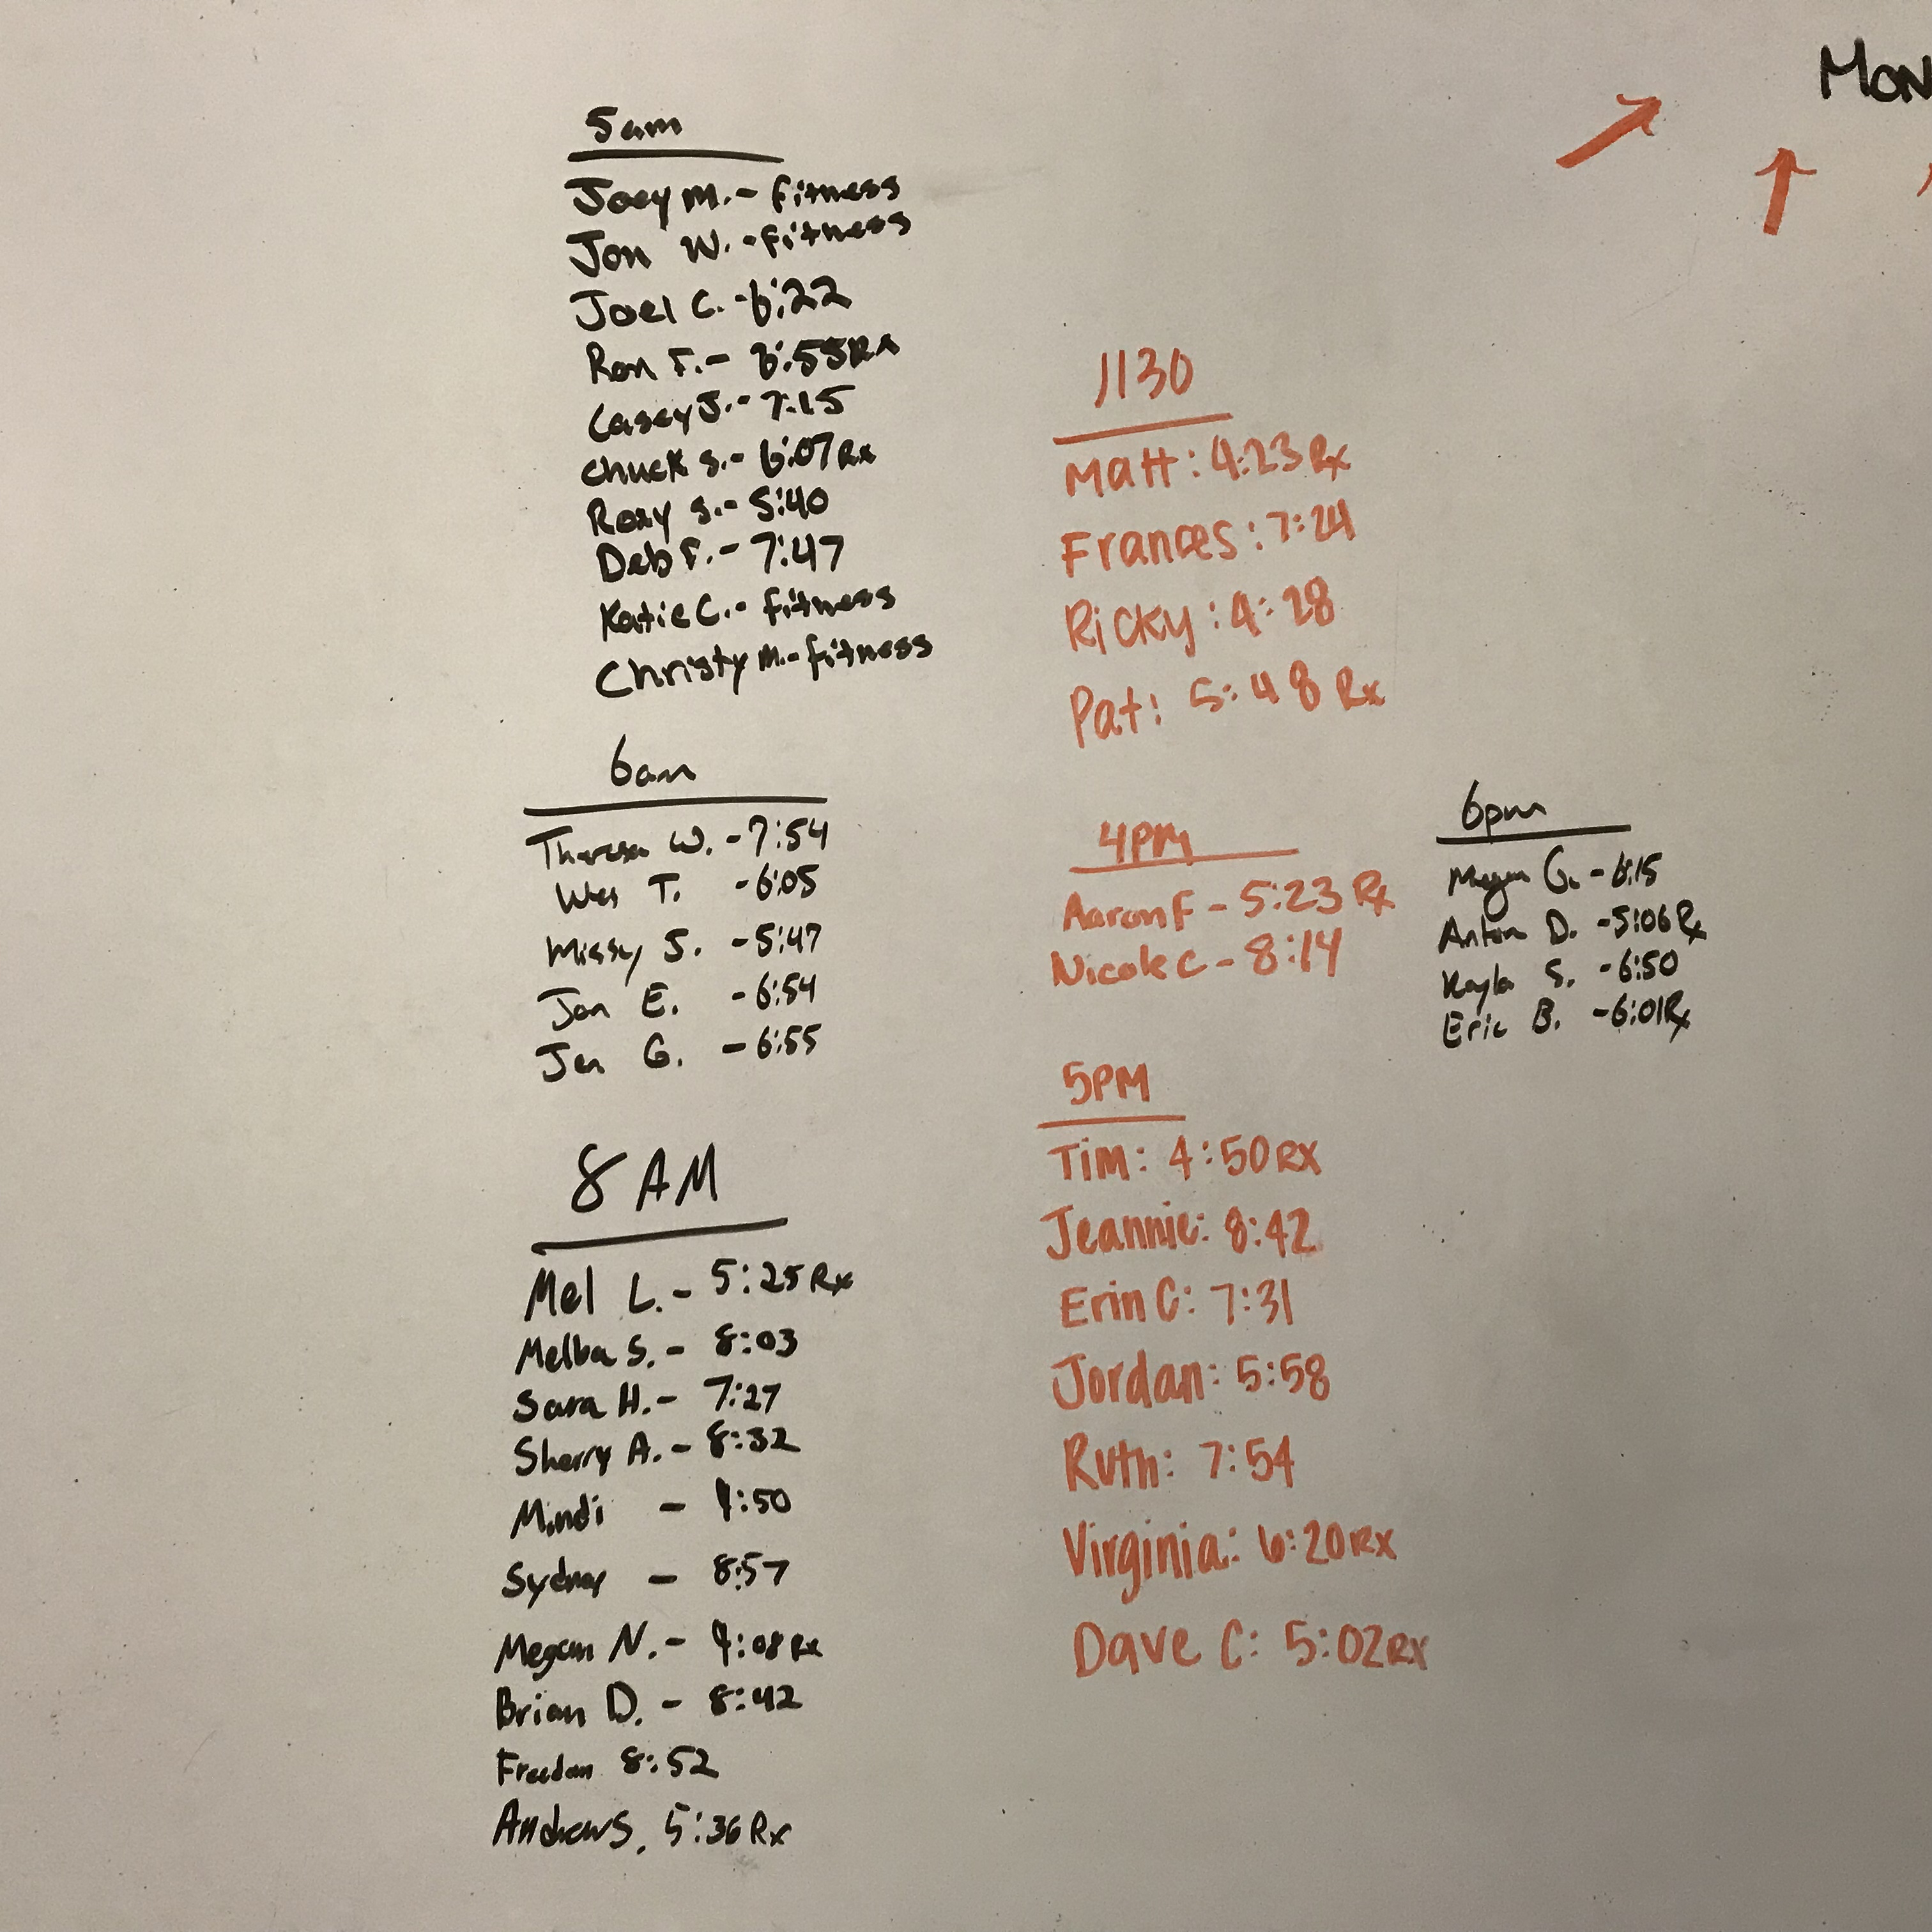 5am
Joey M. - fitness
Jon W. - fitness
Joel C. - 6:22
Ron F. - :55Rx
Casey J. - 7:15
Chuck S. - 6:07 Rx
Roxy S. - 5:40
Deb F. - 7:47
Katie C. - fitness
Christy M. - fitness
6am
Theresa W. - 7:54
Wes T. - 6:05
Missy S. - 5:47
Jon E. - 6:54
Jen G. - 6:55
8 AM
Mel L. - 5:25 Rx
Melba S. - 8:03
Sara H. - 7:27
Sherry A. - 8:32
Mindi - 4:50
Sydney - 8:57
Megan N. - 4:08 Rx
Brian D. - 8:42
8:52
Andrew S. 5:36 Rx
1130
Matt: 4:23 Rx
Frances: 7:24
Ricky: 4:28
Pat: 5:48 Rx
4PM
Aaron F - 5:23 Rx
Nicole C - 8:14
5PM
Tim: 4:50 RX
Jeannie: 8:42
Erin C: 7:31
Jordan: 5:58
Ruth: 7:54
Virginia: 6:20 RX
Dave C: 5:02 RX
6pm
Megan G. - 6:15
Anton D. - 5:06 Rx
Kayla S. - 6:50
Eric B. - 6:01 Rx
MON